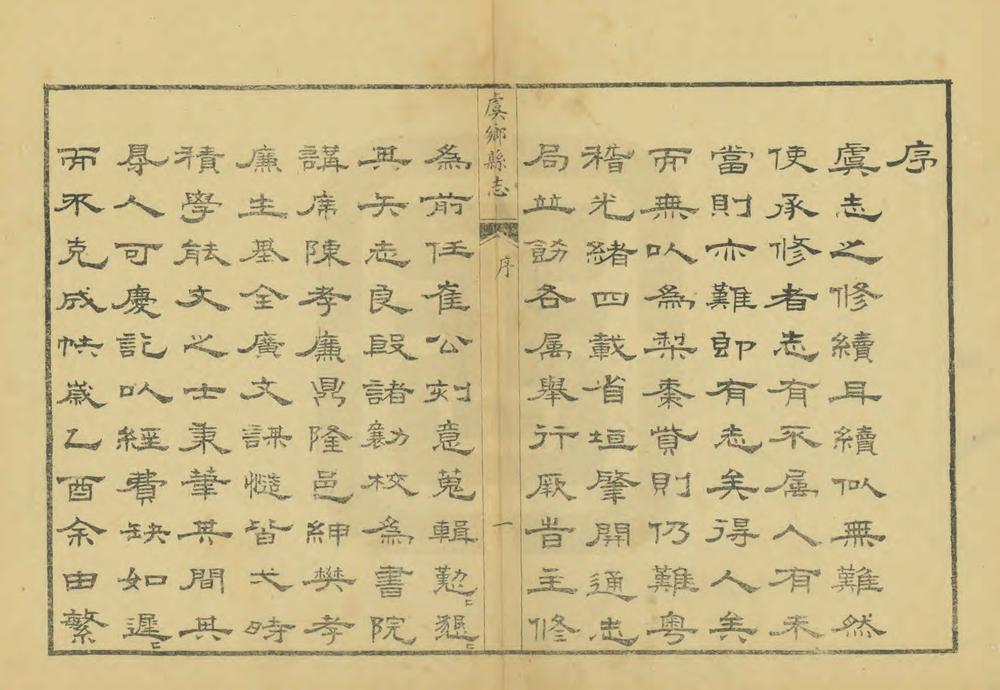 序
虞志之修續耳續似無難然
使承修者志有不属人有未
當則亦難即有志矣得人矣
而無以為梨棗貲則仍難粤
稽光緒四載省垣肇開通志
局並飭各属舉行厥旹主修
虞鄉縣志
序
一
為前任崔公刻意蒐輯懃〻懇〻
其矢志良殷諸勷校為書院
講席陳孝廉鼎隆邑紳樊孝
廉生基全廣文謀慥皆弌時
積學能文之士秉筆其間其
㝵人可慶詎以經費缺如遲〻
而不克成帙歲乙酉余由繁